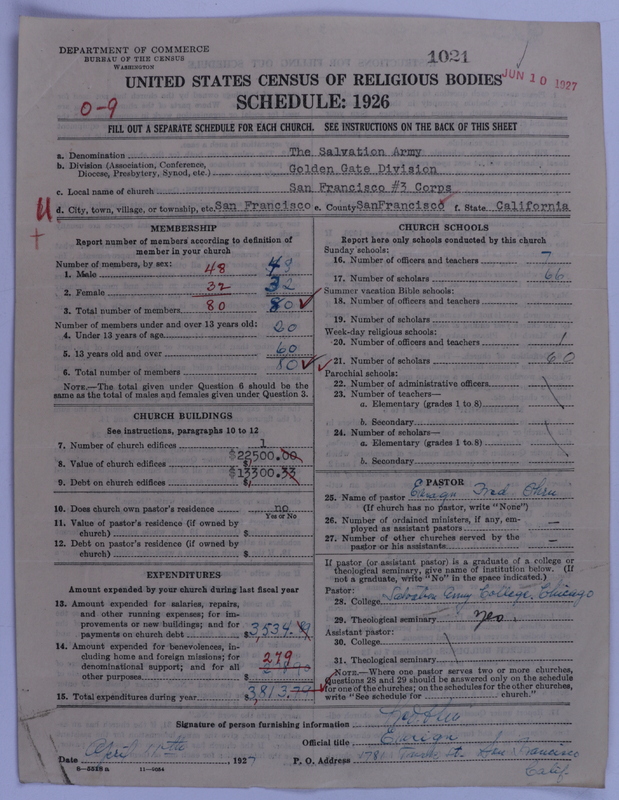 DEPARTMENT OF COMMERCE
BUREAU OF THE CENSUS
WASHINGTON
1021
JUN 10 1927
UNITED STATES CENSUS OF RELIGIOUS BODIES
SCHEDULE: 1926
0-9
FILL OUT A SEPARATE SCHEDULE FOR EACH CHURCH. SEE INSTRUCTIONS ON THE BACK OF THIS SHEET
a. Denomination The Salvation Army
b. Division (Association, Conference, Diocese, Presbytery, Synod, etc.) Golden Gate Division
c. Local name of church San Francisco #3 Corps
d. City, town, village, or township, etc. San Francisco e. County SanFrancisco f. State California
MEMBERSHIP
Report number of members according to definition of
member in your church
Number of members, by sex:
1. Male 48 48
2. Female 32 32
3. Total number of members 80 80
Number of members under and over 13 years old:
4. Under 13 years of age 20
5. 13 years old and over 60
6. Total number of members 80
NOTE.—The total given under Question 6 should be
same as the total of males and females given under Question 3.
CHURCH BUILDINGS
See instructions, paragraphs 10 to 12
7. Number of church edifices 1
8. Value of church edifices $22500.00
9. Debt on church edifices $13300.33
10. Does church own pastor's residence no
Yes or No
11. Value of pastor's residence (if owned by
church) $
12. Debt on pastor's residence (if owned by
church) $
EXPENDITURES
Amount expended by your church during last fiscal year
13. Amount expended for salaries, repairs,
and other running expenses; for im-
provements or new buildings; and for
payments on church debt $3,534.
14. Amount expended for benevolences, in-
cluding home and foreign missions; for
denominational support; and for all
other purposes $ 279
15. Total expenditures during year $3,813.79
CHURCH SCHOOLS
Report here only schools conducted by this church
Sunday schools:
16. Number of officers and teachers 7
17. Number of scholars 66
Summer vacation Bible schools:
18. Number of officers and teachers
19. Number of scholars
Week-day religious schools:
20. Number of officers and teachers 1
21. Number of scholars 60
Parochial schools:
22. Number of administrative officers
23. Number of teachers—
a. Elementary (grades 1 to 8)
b. Secondary
24. Number of scholars—
a. Elementary (grades 1 to 8)
b. Secondary
PASTOR
25. Name of pastor Ensign Fred
(If church has no pastor, write "None")
26. Number of ordained ministers, if any, em-
ployed as assistant pastors —
27. Number of other churches served by the
pastor or his assistants —
If pastor (or assistant pastor) is a graduate of a college or
theological seminary, give name of institution below. (If
not a graduate, write "No" in the space indicated.)
Pastor:
28. College Salvation Army College, Chicago
29. Theological seminary Yes.
Assistant pastor:
30. College
31. Theological seminary
NOTE.—Where one pastor serves two or more churches,
Questions 28 and 29 should be answered only on the schedule
for one of the churches; on the schedules for the other churches,
write "See schedule for church."
Signature of person furnishing information
Official title Ensign
Date April 11th, 1927 P. O. Address St. San Francisco
Calif.
8—5518a 11—9054